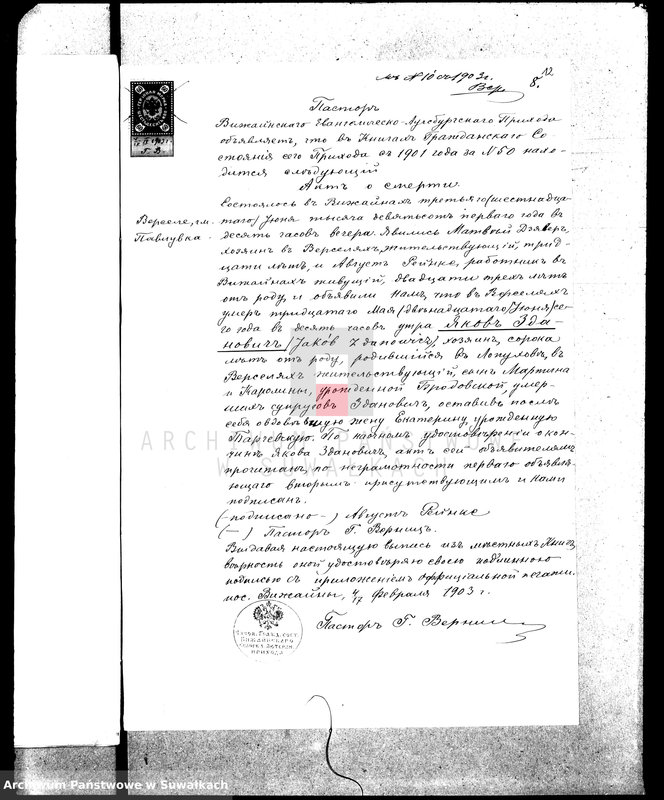 къ № 10 съ 1903 г.
8. 12
Пасторъ
Вижайнскаго Евангелическо-Аугсбургскаго Прихода
объявляетъ, что въ Книгахъ Гражданскаго Со
стоянія сего Прихода съ 1901 года за № 50 нахо-
дится слѣдующій
Актъ о смерти.
Верселе, гм.
Павлувка.
Состоялось въ Вижайнахъ третьяго/шестнадца-
таго/ Іюня тысяча девятьсотъ перваго года въ
десять часовъ вечера. Явились Матвѣй
хозяинъ въ Верселяхъ жительствующій, трид-
цати лѣтъ, и Августъ Рейнке, работникъ въ
Вижайнахъ живущій, двадцати трехъ лѣтъ
отъ роду, и объявили намъ, что въ Верселяхъ
умеръ тридцатаго Мая /двѣнадцатаго/Іюня/се-
го года въ десять часовъ утра Яковъ Зда-
новичъ /Jakób Zdanowicz/, хозяинъ, сорока
лѣтъ отъ роду, родившійся въ въ
Верселяхъ жительствующій, сынъ Мартина
и Каролины, урожденной умер-
шихъ супруговъ Здановичъ, оставивъ послѣ
себя овдовѣвшую жену Екатерину, урожденную
По наочномъ удостовѣреніи о кон-
чинѣ Якова Здановичъ, актъ сей объявителямъ
прочитанъ, по неграмотности перваго объявля-
ющаго вторымъ присутствующимъ и Нами
подписанъ.
(-подписано-) Августъ Рейнке
(-) Пасторъ Г. Верницъ.
Выдавая настоящую выпись изъ мѣстныхъ Книгъ,
вѣрность оной удостовѣряю своею подлинною
подписью съ приложеніемъ оффиціальной печати.
пос. Вижайны, 4/17 Февраля 1903 г.
Пасторъ Г. Верницъ
ARCHIWUM PAŃSTWOWE
W SUWAŁKACH
Archiwum Państwowe w Suwałkach